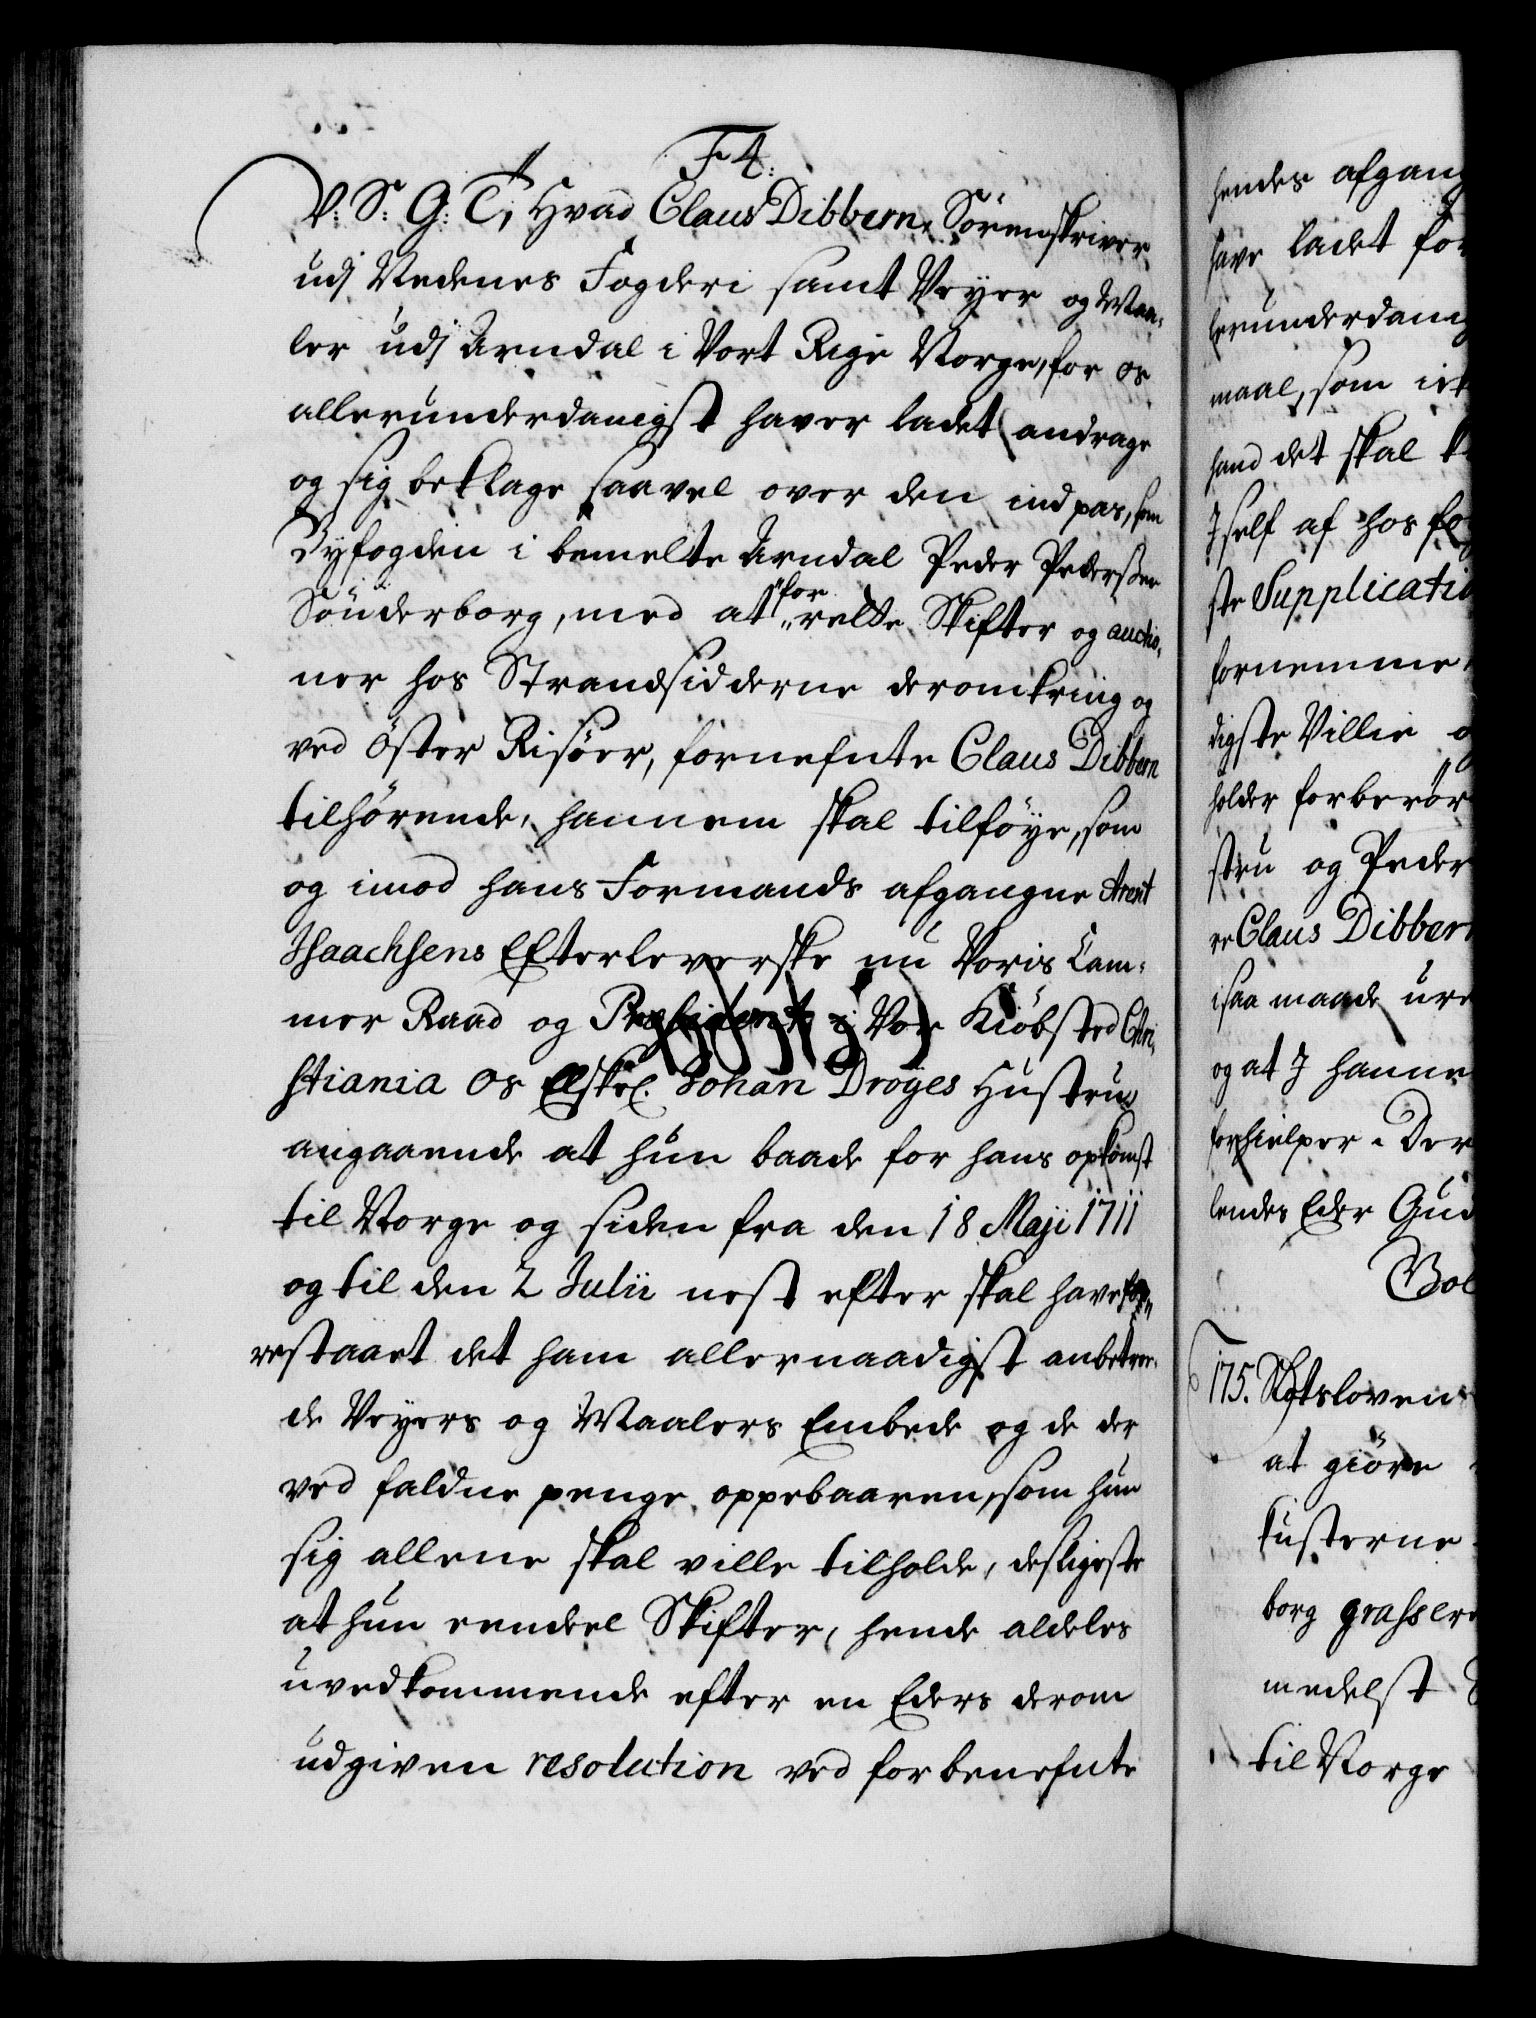 F 4.
V: S: G: T; Hvad Claus Dibbern, Sörenskriver
udj Nedenes Fogderi samt Veyer og Maa-
ler udj Arndal i Vort Rige Norge, for os
allerunderdanigst haver ladet andrage
og sig beklage saavel over den indpas, som
Byfogden i bemelte Arndal Peder Pedersen
Sönderborg, med at for-
rette Skifter og auctio-
ner hos Strandsidderne deromkring og
ved Öster Risöer, fornefnte Claus Dibbern
tilhörende, hannem skal tilföye, som
og imod hans Formands afgangne Arent
Isaachsens Efterleverske nu Voris Cam-
mer Raad og President i Vor Kiöbsted Chri-
stiania Os Elskel. Johan Dröyes Hustru
angaaende at hun baade for hans opkomst
til Norge og siden fra den 18 Maji 1711
og til den 2 Julii nest efter skal have for-
restaaet det ham allernaadigst anbetroe-
de Veyers og Maalers Embede og de der
ved faldne penge oppebaaren, som hun
sig allene skal ville tilholde, desligeste
at hun eendeel Skifter, hende aldeles
uvedkommende efter en Eders derom
udgiven resolution ved forbenefnte
hendes afgang
have ladet for
lerunderdanig
maal, som
hand det skal
I self af hos fo
ste Supplicatio
fornemme
digste Villie
holder forberör
stru og Peder
re Claus Dibbern
isaa maade ure
og at I hanne
forhielper. Der
lendes Eder Gud
175. Slotsloven
at giöre
kusterne
borg grasser
medelst
til Norge